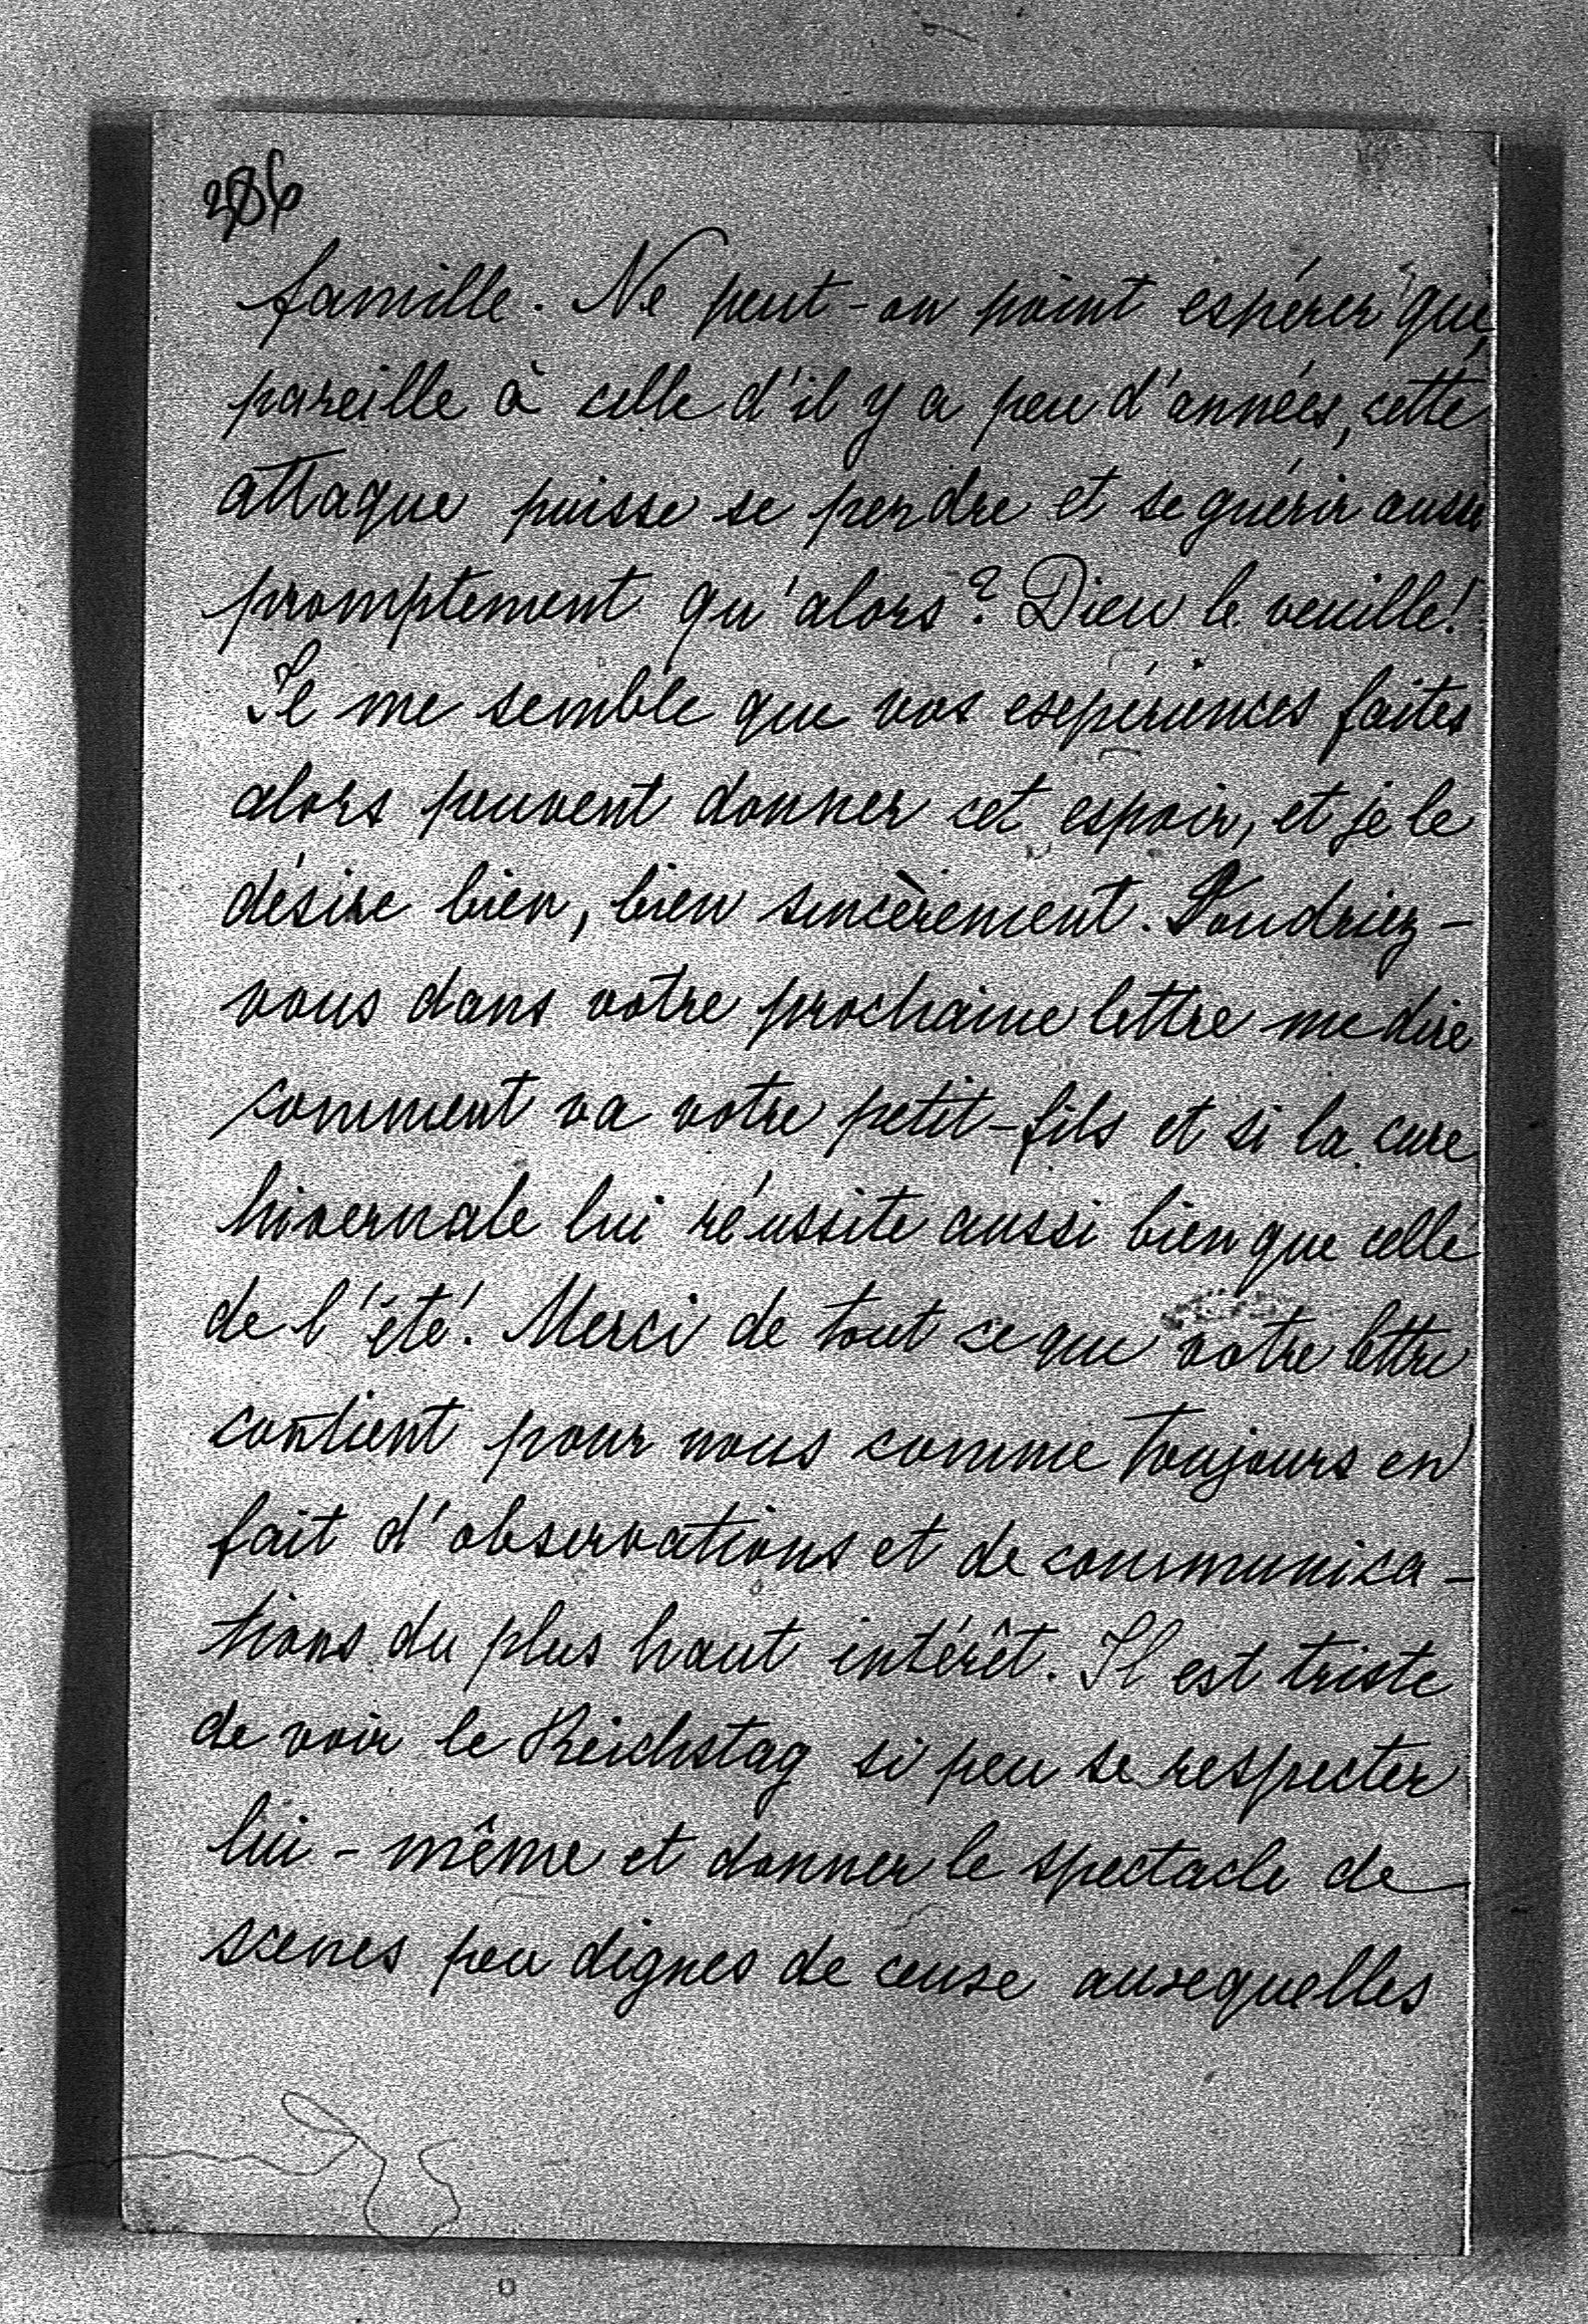 286
famille. Ne peut-on point espérer que,
pareille à celle d'il y a peu d'années, cette
attaque puisse se perdre et se guérir aussi
promptement qu'alors? Dieu le veuille!
Il me semble que vos expériences faites
alors peuvent donner cet espoir, et je le
désire bien, bien sincèrement. Voudriez-
vous dans votre prochaine lettre me dire
comment va votre petit-fils et si la cure
hivernale lui réussite aussi bien que celle
de l'été. Merci de tout ce que votre lettre
contient pour nous comme toujours en
fait d'observations et de communica-
tions du plus haut intérêt. Il est triste
de voir le Reichstag si peu se respecter
lui-même et donner le spectacle de
scenes peu dignes de ceux auxquelles